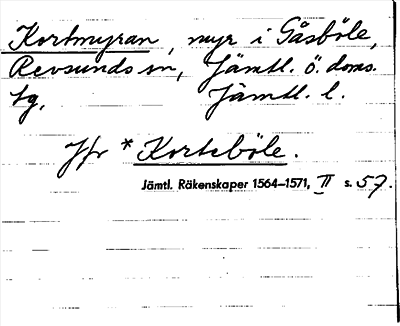 Kortmyran, myr i Gåsböle,
Revsunds sn, Jämtl. ö. doms.
tg. Jämtl. l.
Jfr *Korteböle.
Jämtl. Räkenskaper 1564–1571, II s. 57.